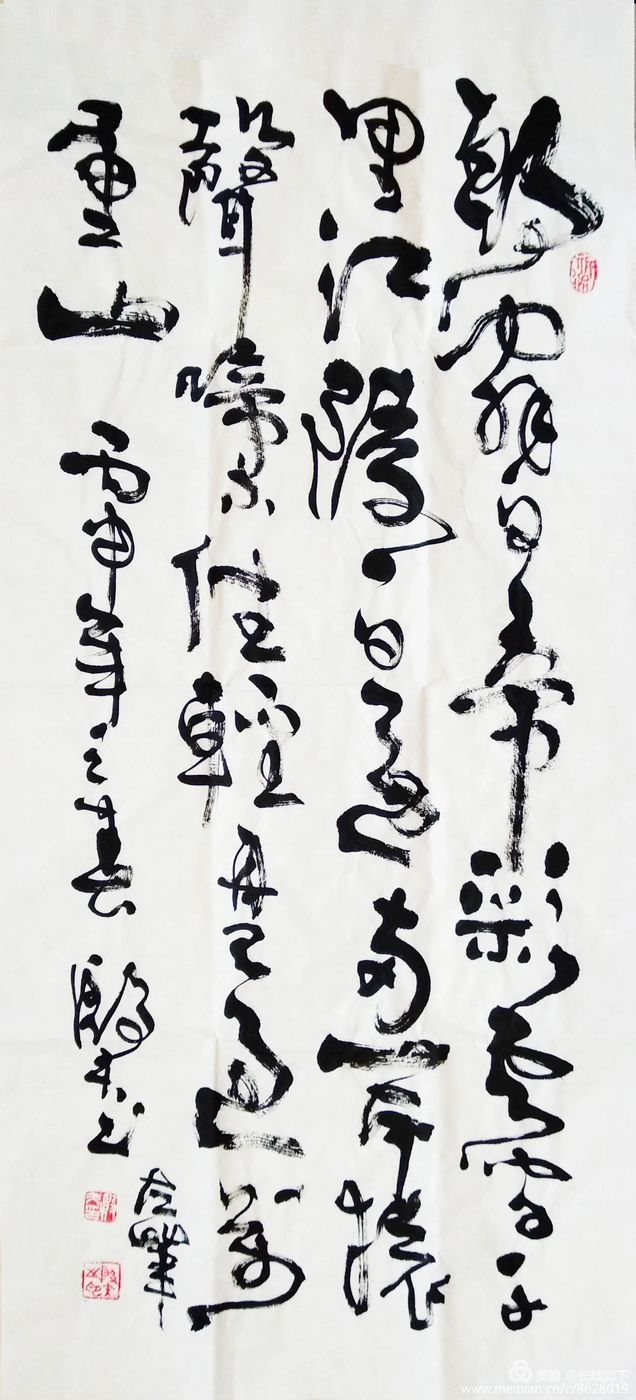 朝辭白帝彩雲間千
里江陵一日還兩岸猿
聲啼不住輕舟已過萬
重山 丙申年之春 书
左筆
美篇 @长城脚下
www.meipian.cn/c/8628019